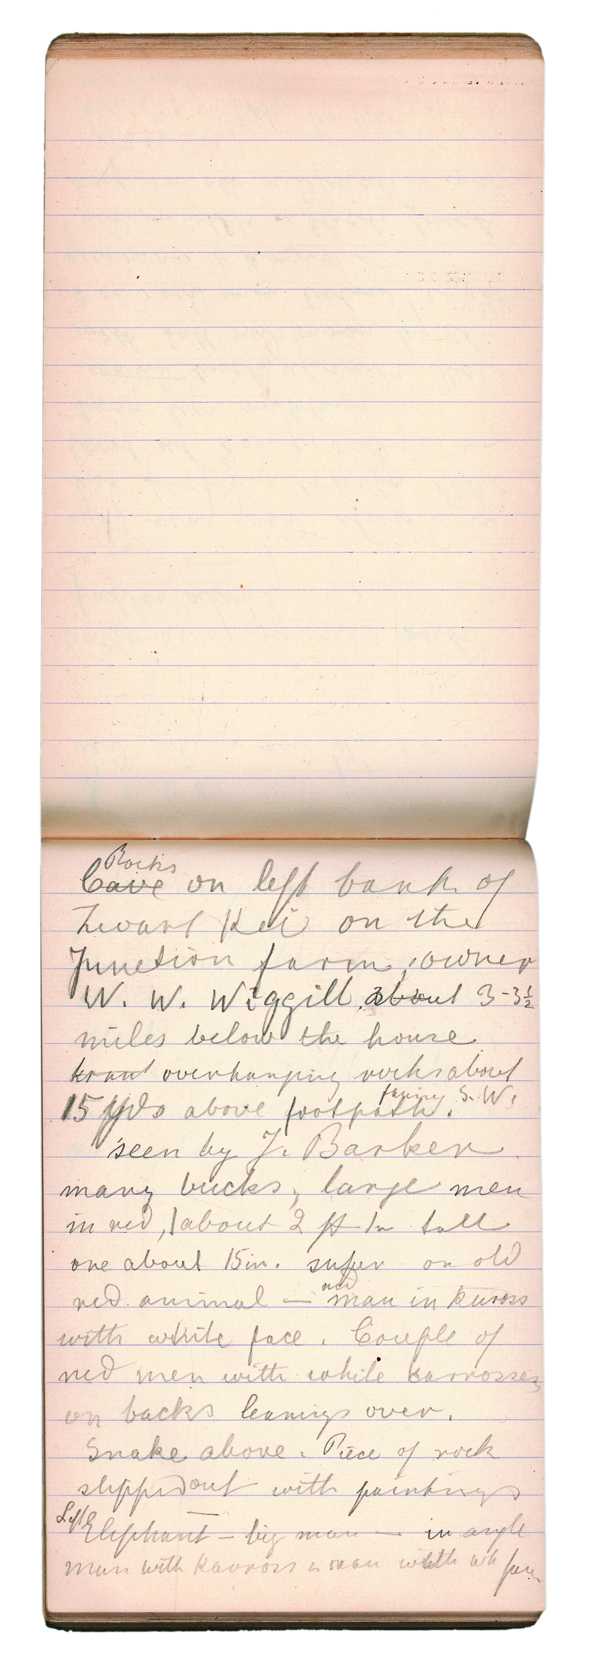 Rocks
Cave on left bank of
Zwart Kei on the
Junction farm, owner
W. W. Wiggill, about 3-3½
miles below the house
overhanging rocks about
15 yds above footpath. facing S. W.
seen by J. Barker.
many bucks, large men
in red, 1 about 2 ft tall
one about 15 in. super on old
red animal — red man in kaross
with white face. Couple of
red men with white karrosses
on backs leaning over.
Snake above. Piece of rock
slipped out with paintings
Left Elephant — big man — in angle
man with karross man with wh face